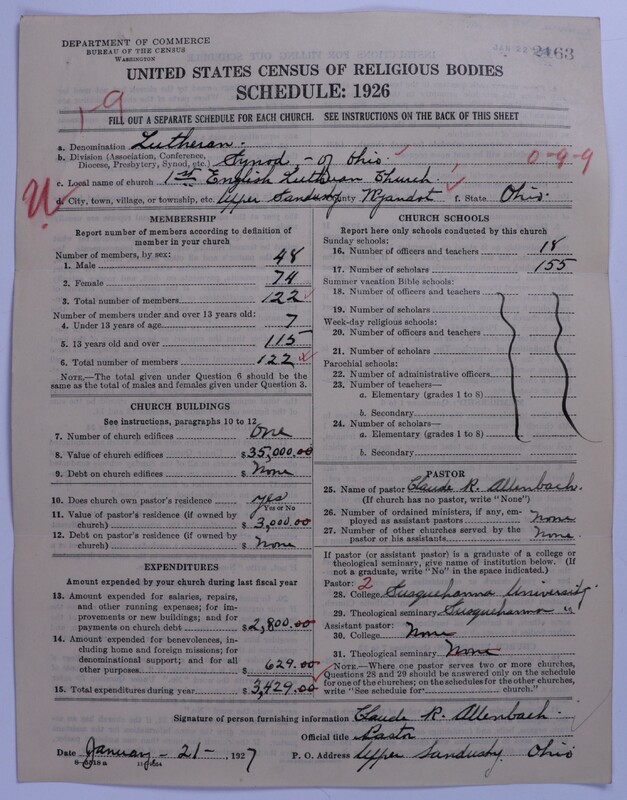 DEPARTMENT OF COMMERCE
BUREAU OF THE CENSUS
WASHINGTON
2163
UNITED STATES CENSUS OF RELIGIOUS BODIES
SCHEDULE: 1926
1-9
FILL OUT A SEPARATE SCHEDULE FOR EACH CHURCH. SEE INSTRUCTIONS ON THE BACK OF THIS SHEET
a. Denomination Lutheran.
b. Division (Association, Conference, Diocese, Presbytery, Synod, etc.) Synod - of Ohio
0-9-9
c. Local name of church 1st English Lutheran Church.
d. City, town, village, or township, etc. Upper Sandusky County Wyandot f. State Ohio.
MEMBERSHIP
Report number of members according to definition of member in your church
Number of members, by sex:
1. Male 48
2. Female 74
3. Total number of members 122
Number of members under and over 13 years old:
4. Under 13 years of age 7
5. 13 years old and over 115
6. Total number of members 122
NOTE.—The total given under Question 6 should be the same as the total of males and females given under Question 3.
CHURCH BUILDINGS
See instructions, paragraphs 10 to 12
7. Number of church edifices One
8. Value of church edifices $35,000.00
9. Debt on church edifices $None
10. Does church own pastor's residence yes
Yes or No
11. Value of pastor's residence (if owned by church) $3,000.00
12. Debt on pastor's residence (if owned by church) $None
EXPENDITURES
Amount expended by your church during last fiscal year
13. Amount expended for salaries, repairs, and other running expenses; for improvements or new buildings; and for payments on church debt $2,800.00
14. Amount expended for benevolences, including home and foreign missions; for denominational support; and for all other purposes $629.00
15. Total expenditures during year $3,429.00
CHURCH SCHOOLS
Report here only schools conducted by this church
Sunday schools:
16. Number of officers and teachers 18
17. Number of scholars 155
Summer vacation Bible schools:
18. Number of officers and teachers
19. Number of scholars
Week-day religious schools:
20. Number of officers and teachers
21. Number of scholars
Parochial schools:
22. Number of administrative officers
23. Number of teachers—
a. Elementary (grades 1 to 8)
b. Secondary
24. Number of scholars—
a. Elementary (grades 1 to 8)
b. Secondary
PASTOR
25. Name of pastor Claude R. Allenbach.
(If church has no pastor, write "None")
26. Number of ordained ministers, if any, employed as assistant pastors None
27. Number of other churches served by the pastor or his assistants None.
If pastor (or assistant pastor) is a graduate of a college or theological seminary, give name of institution below. (If not a graduate, write "No" in the space indicated.)
Pastor: 2
28. College Susquehanna University.
29. Theological seminary Susquehanna "
Assistant pastor:
30. College None
31. Theological seminary None
NOTE.—Where one pastor serves two or more churches, Questions 28 and 29 should be answered only on the schedule for one of the churches; on the schedules for the other churches, write "See schedule for church."
Signature of person furnishing information Claude R. Allenbach.
Official title Pastor
Date January - 21 -, 1927
P. O. Address Upper Sandusky, Ohio